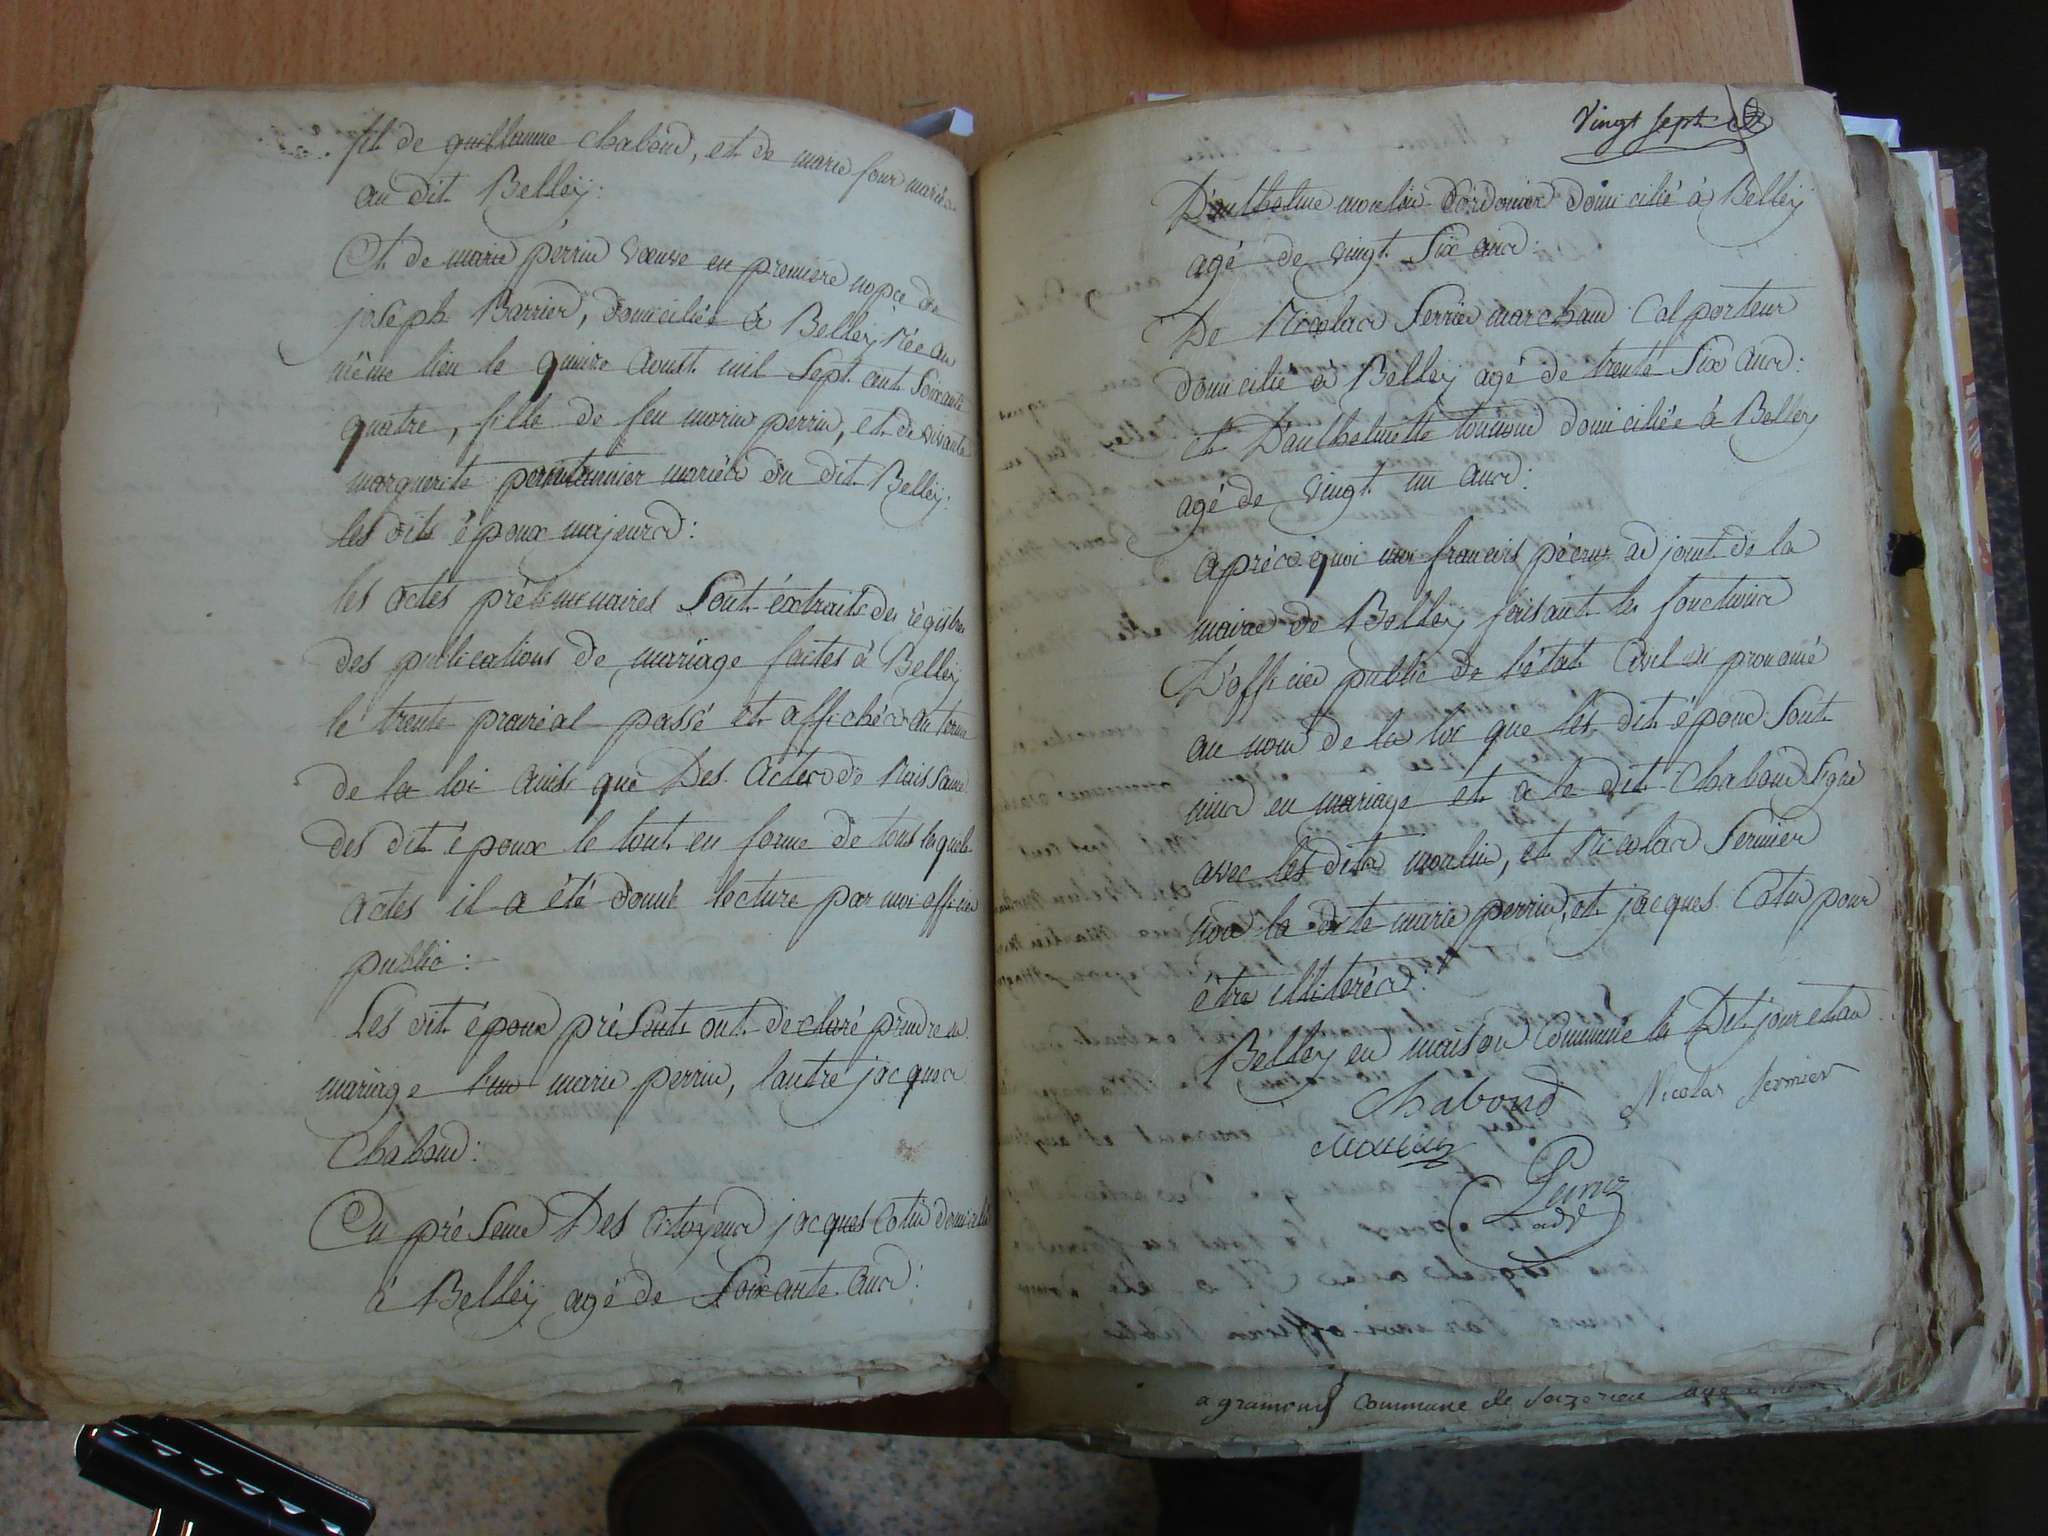 fil de guillaume Chabond, et de marie four mariés
au dit Belleÿ:
Et de marie perrin veuve en premiere nopce de
joseph Barrier, domiciliée à Belleÿ née au
même lieu le quinze aoust mil sept cent soixante
quatre, fille de feu marin perrin, et de vivante
marguerite mariés du dit Belleÿ:
les dits époux majeurs:
les actes préliminaires sont éxtraits des régistres
des publications de mariage faites à Belleÿ
le trente prairéal passé et affichés au terme
de la loi ainsi que Des actes de Naissance
des dit époux le tout en forme de tous lesquels
actes il a été donné lecture par moi officier
public:
Les dit époux présent ont declaré prendre en
mariage l'un marie perrin, lautre jacques
Chabond:
En présence Des citoyens jacques Cotin domicilié
à Belleÿ agé de soixante ans:
Vingt sept
D'anthelme moulin Cordonier domicilié à Belleÿ
agé de vingt six ans:
De Nicolas Sermier marchand Colporteur
domicilié à Belleÿ agé de trente six ans:
et D'anthelmette domiciliée à Belley
agé de vingt un ans:
après quoi moi francois adjoint de la
mairie de Belleÿ faisant les fonctions
D'officier public de l'état Civil ai prononcé
au nom de la loi que les dit époux sont
unis en mariage et a le dit Chabond signé
avec les dits moulin, et Nicolas Sermier
non la dite marie perrin, et jacques Cotin pour
être illiterés:
Belley en maison Commune les Dit jour et an
Chabond Nicolas Sermier
Moulin
adt
a gramond commune de